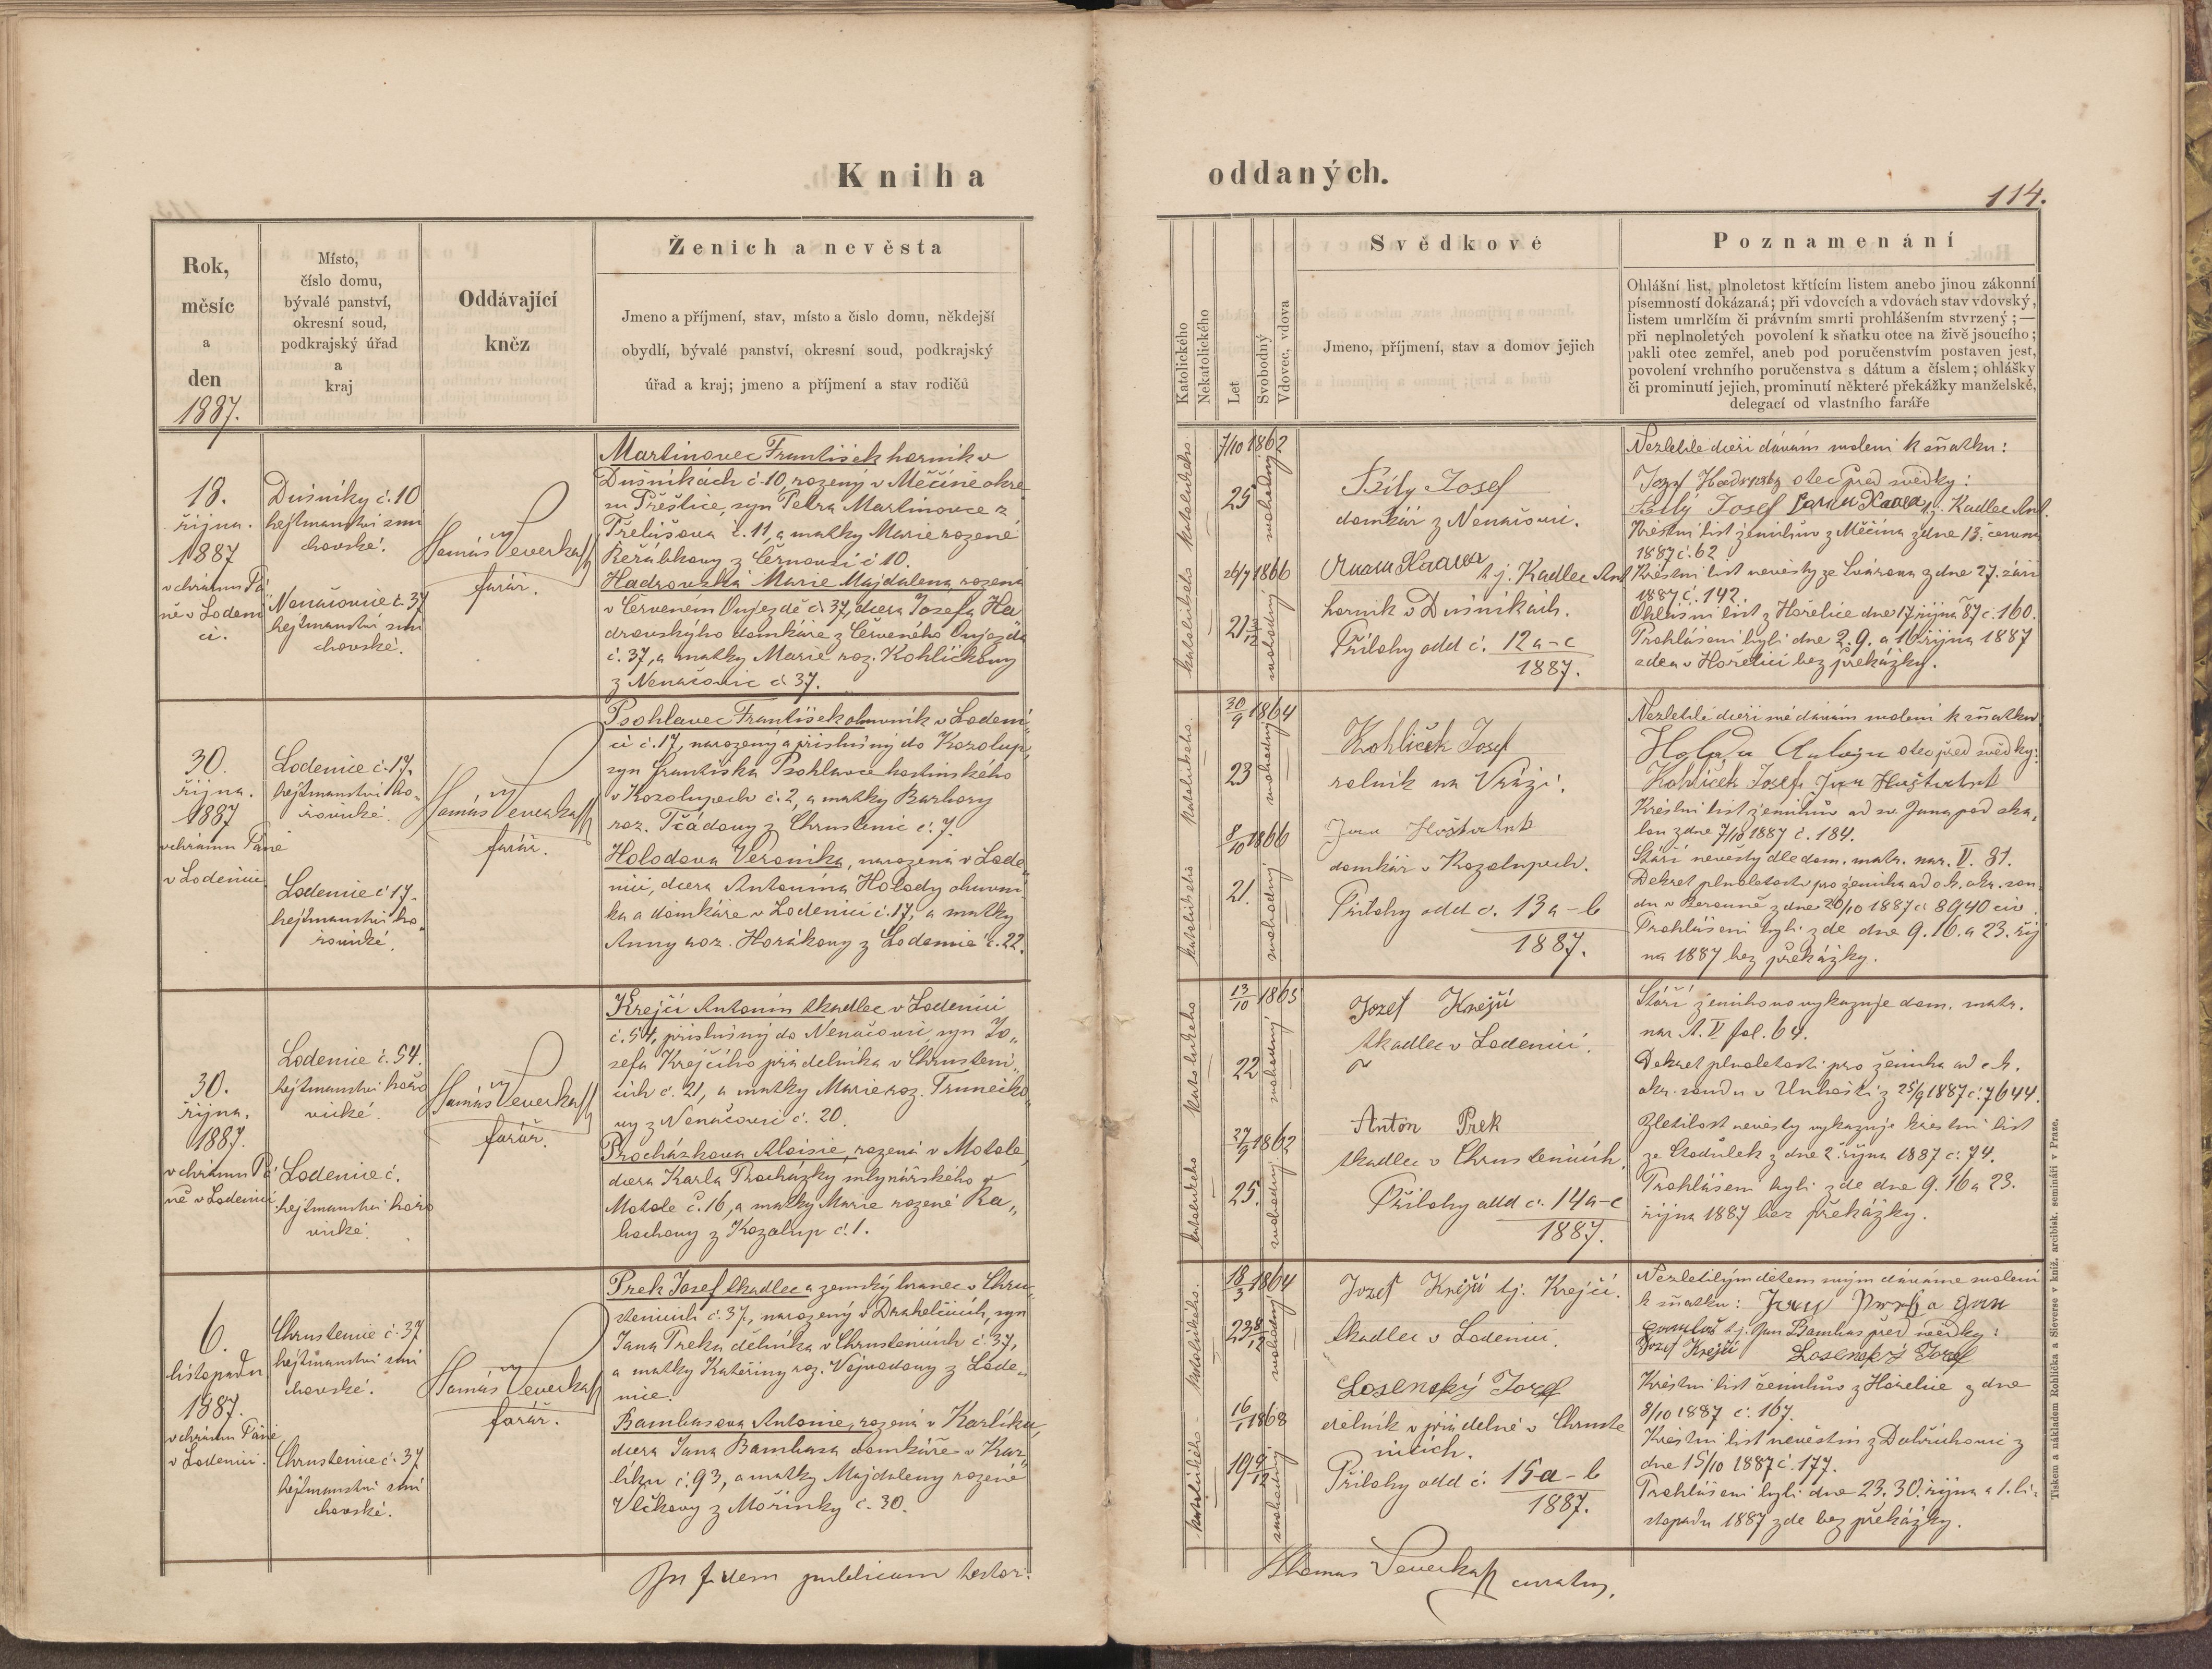 Kniha
oddaných.
114.
Rok,
měsíc
a
den
1887.
Místo,
číslo domu,
bývalé panství,
okresní soud,
podkrajský úřad
a
kraj
Oddávající
kněz
Ženich a nevěsta
Jmeno a příjmení, stav, místo a číslo domu, někdejší
obydlí, bývalé panství, okresní soud, podkrajský
úřad a kraj; jmeno a příjmení a stav rodičů
Katolického
Nekatolického
Let
Svobodný
Vdovec, vdova
Svědkové
Jmeno, příjmení, stav a domov jejich
Poznamenání
Ohlášní list, plnoletost křtícím listem anebo jinou zákonní
písemností dokázaná; při vdovcích a vdovách stav vdovský,
listem umrlčím či právním smrti prohlášením stvrzený; —
při neplnoletých povolení k sňatku otce na živě jsoucího;
pakli otec zemřel, aneb pod poručenstvím postaven jest,
povolení vrchního poručenstva s dátum a číslem; ohlášky
či prominutí jejich, prominutí některé překážky manželské,
delegací od vlastního faráře
18.
října.
1887
v chrámu Pá
ně v Lodeni
ci.
Dušníky č. 10
hejtmanství smí
chovské.
Nenačovice č. 37
hejtmanství smí
chovské.
Tomáš Veverka
farář.
Martinovec František horník v
Dušníkách č 10, rozený v Měčíně okre
su Přeštice, syn Petra Martinovce z
č. 11, a matky Marie rozené
Řeřábkovy z č 10.
Hadrovská Marie Majdalena, rozená
v Červeném Oujezdě č 37, dcera Josefa Ha
drovskýho domkáře z Červeného Oujezda
č. 37, a matky Marie roz. Kohlíčkovy
z Nenačovic č 37.
katolického
7/10 1862
25
svobodný
katolického
26/7 1866
21
svobodný
Bílý Josef
domkář z Nenačovic.
t. j. Kadlec Ant
horník v Dušníkách.
Přílohy odd č. 12 a-c
1887.
Nezletilé dceři dávám svolení k sňatku:
Jozef Hadrovský otec před svědky:
Bílý Josef t. j. Kadlec Ant.
Křestní list ženichův z Měčína z dne 13. června
1887 č. 62
Křestní list nevěsty ze Svárova z dne 27. září
1887 č. 142.
Ohlášní list z Hořelice dne 17 října 87 č. 160.
Prohlášeni byli dne 2. 9. a 16 října 1887
zde a v Hořelici bez překážky.
30.
října.
1887
v chrámu Páně
v Lodenici
Lodenice č. 17.
hejtmanství ho
řovické.
Lodenice č 17.
hejtmanství ho
řovické.
Tomáš Veverka
farář.
Psohlavec František obuvník v Lodeni
ci č. 17, narozený a příslušný do Kozolup,
syn Františka Psohlavce hostinského
v Kozolupech č. 2, a matky Barbory
roz. z Chrustenic č. 7.
Holodova Veronika, narozená v Lode
nici, dcera Antonína Holody obuvní
ka a domkáře v Lodenici č. 17, a matky
Anny roz. Horákovy z Lodenic č. 22.
katolického
30/9 1864
23
svobodný
katolického
8/10 1866
21.
svobodný
Kohlíček Josef
rolník na Vráži.
Jan Hošťálek
domkář v Kozolupech.
Přílohy odd č. 13 a-b
1887.
Nezletilé dceři mé dávám svolení k sňatku
Holoda Antonín otec před svědky:
Kohlíček Josef Jan Hošťálek
Křestní list ženichův od sv. Jana pod ska
lou z dne 7/10 1887 č. 184.
Stáří nevěsty dle dom. matr. nar. V. 81.
Dekret plnoletosti pro ženicha od c. k. okr. sou
du v Berouně z dne 20/10 1887 č 8940 civ.
Prohlášeni byli zde dne 9. 16. a 23. říj
na 1887 bez překážky.
30.
října.
1887.
v chrámu Pá
ně v Lodenici
Lodenice č. 54.
hejtmanství hořo
vické.
Lodenice č.
hejtmanství hořo
vické.
Tomáš Veverka
farář.
Krejčí Antonín tkadlec v Lodenici
č. 54, příslušný do Nenačovic, syn Jo
sefa Krejčího přádelníka v Chrusteni
cích č. 21, a matky Marie roz. Trunečko
vy z Nenačovic č. 20.
Procházkova Aloisie, rozená v Motole,
dcera Karla Procházky mlynářského v
Motole č. 16, a matky Marie rozené Ra
bochovy z Kozolup č. 1.
katolického
13/10 1865
22
svobodný
katolického
27/9 1862
25.
svobodný
Jozef Krejčí
tkadlec v Lodenici.
Anton Prek
tkadlec v Chrustenicích.
Přílohy odd č. 14 a-c
1887.
Stáří ženichovo vykazuje dom. matr.
nar. A. V fol. 64.
Dekret plnoletosti pro ženicha od c. k.
okr. soudu v Unhošti z 25/9 1887 č. 7644.
Zletilost nevěsty vykazuje křestní list
ze Stodůlek z dne 2. října 1887 č. 74.
Prohlášeni byli zde dne 9. 16 a 23.
října 1887 bez překážky.
6.
listopadu
1887.
v chrámu Páně
v Lodenici.
Chrustenice č. 37
hejtmanství smí
chovské.
Chrustenice č. 37
hejtmanství smí
chovské.
Tomáš Veverka
farář.
Prek Josef tkadlec a zemský branec v Chru
stenicích č. 37, narozený v Drahelčicích, syn
Jana Preka dělníka v Chrustenicích č. 37,
a matky Kateřiny roz. Vojvodovy z Lode
nice.
Bambasova Antonie, rozená v Karlíku,
dcera Jana Bambasa domkáře v Kar
líku č. 93, a matky Majdaleny rozené
Vlčkovy z Mořinky č. 30.
katolického
18/3 1864
23 8/12
svobodný
katolického
16/1 1868
19 9/12
svobodný
Jozef Krejčí t. j. Krejčí.
tkadlec v Lodenici.
Losenský Jozef
dělník v přádelně v Chruste
nicích.
Přílohy odd č. 15 a-b
1887.
Nezletilým dětem svým dáváme svolení
k sňatku: a Jan
t. j. Jan Bambas před svědky:
Jozef Krejčí Losenský Jozef
Křestní list ženichův z Hořelice z dne
8/10 1887 č. 167.
Křestní list nevěstin z Dobřichovic z
dne 15/10 1887 č. 177.
Prohlášeni byli dne 23. 30. října a 1. li
stopadu 1887 zde bez překážky.
In fidem publicam testor:
Thomas Veverka curatus.
Tiskem a nákladem Rohlíčka a Sieverse v kníž. arcibisk. semináři v Praze.